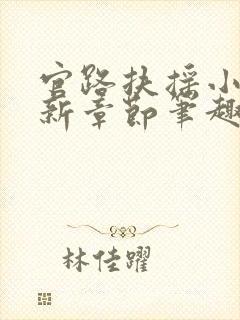 官路扶摇小
新章节笔趣
林佳躍